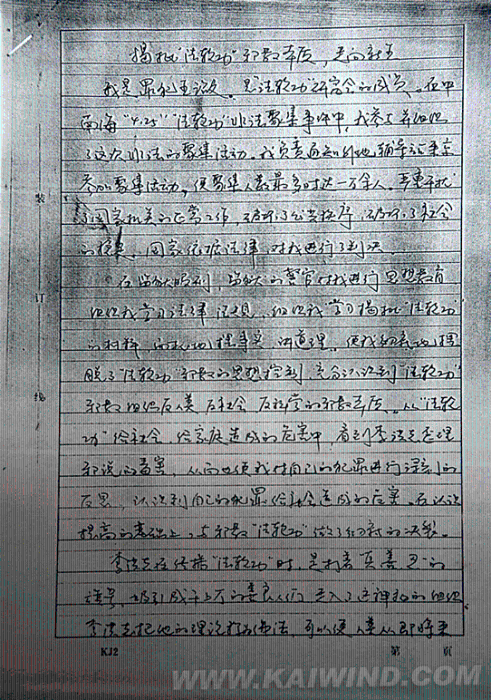 揭批“法轮功”邪教本质，走向新生
我是罪犯王治文。是“法轮功”研究会的成员。在中
南海“4.25”“法轮功”非法聚集事件中，我参与并组织
了这次非法的聚集活动。我负责通知外地辅导站来京
参加聚集活动。使聚集人数最多时达一万余人。严重干扰
了国家机关的正常工作，破坏了公共秩序，破坏了社会
的稳定。国家依据法律，对我进行了判决。
在监狱服刑，监狱的警官对我进行思想教育
组织我学习法律法规，组织我学习揭批“法轮功”
的材料，向我们摆事实，讲道理。使我初步地摆
脱了“法轮功”邪教的思想控制，充分认识到“法轮功”
邪教组织反人类、反社会、反科学的邪教本质。从“法轮
功”给社会、给家庭造成的危害中，看到李洪志歪理
邪说的毒害，从而也使我对自己的犯罪进行深刻的
反思，认识到自己的犯罪给社会造成的危害。在认识
提高的基础上，与邪教“法轮功”做了彻底的决裂。
李洪志在传播“法轮功”时，是打着“真善忍”的
旗号，吸引成千上万的善良人们走入了这种邪的组织
李洪志把他的理论打扮佛法，可以使人类从即将来
装
订
线
KJ2
第 页
WWW.KAIWIND.COM